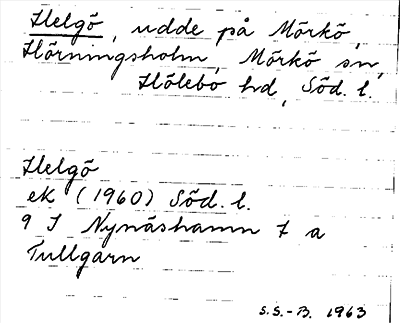 Helgö, udde på Mörkö,
Hörningsholm, Mörkö sn,
Hölebo hd, Söd. l.
Helgö
ek (1960) Söd. l.
9 I Nynäshamn 7 a
Tullgarn
S.S.-B. 1963